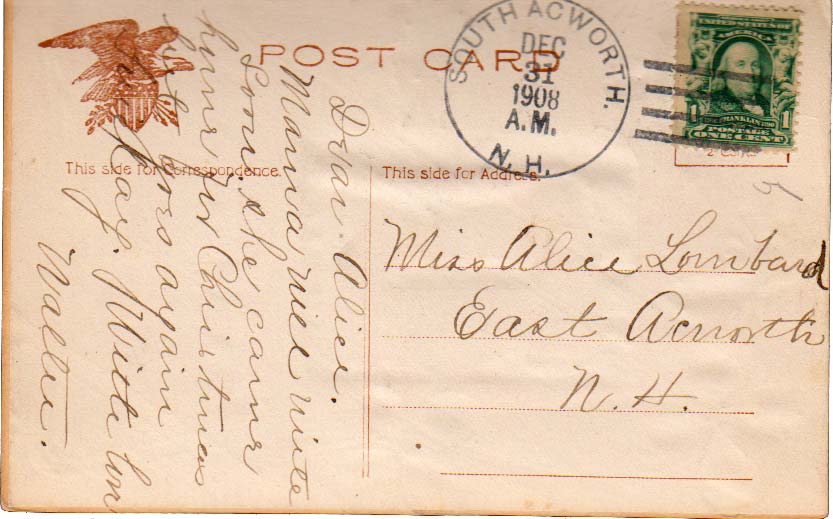 POST CARD
SOUTH ACWORTH.
DEC
31
1908
A.M.
N.H.
UNITED STATES OF
AMERICA
1 FRANKLIN 1
POSTAGE
ONE CENT
This side for Correspondence.
This side for Address.
Dear Alice.
Mama will write
soon. she came
home for Christmas
but goes again
to day. With lov
Walter.
Miss Alice Lombard
East Acworth
N. H.